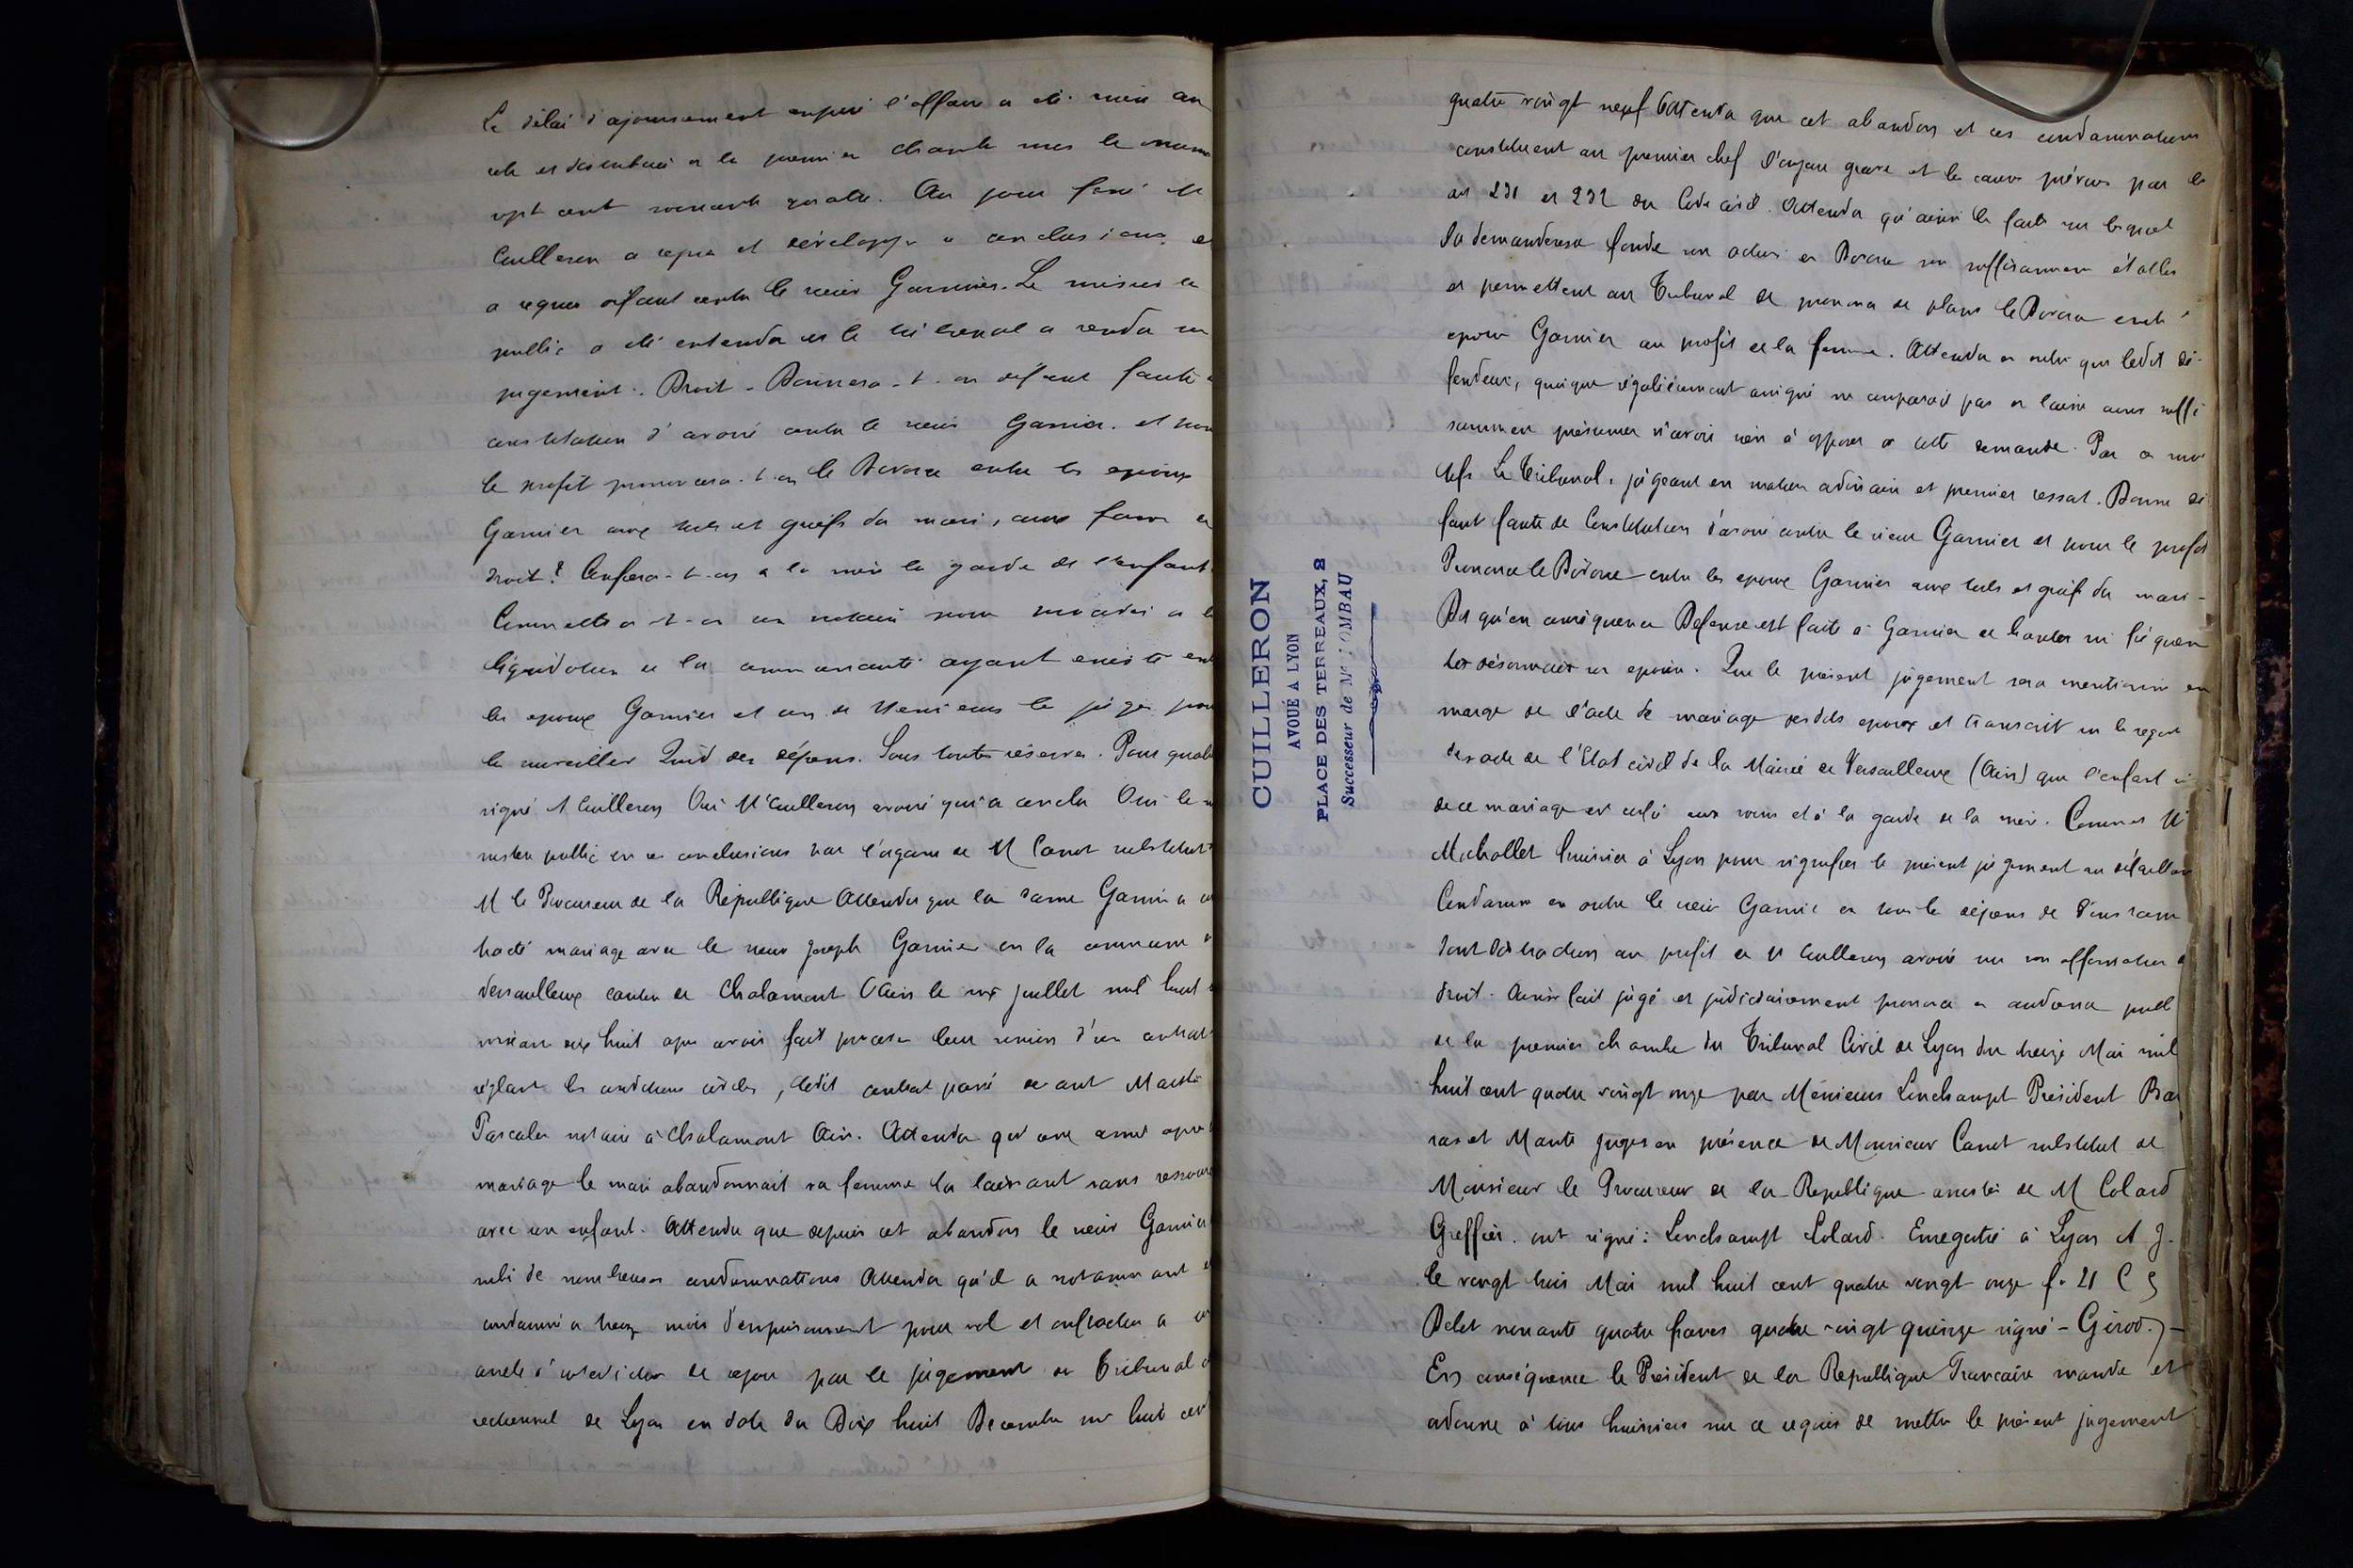 Le délai d'ajournement expiré l'affaire a été mise au
role et distribuée a la premier chambre sous le numero
sept cent soixante quatre. Au jour fixé Me
Cuilleron a repris et développé ses conclusions et
a requis défaut contre le sieur Garnier. Le ministere
public a été entendu et le tribunal a rendu son
jugement. Droit. Donnera-t-on défaut faute de
constitution d'avoué contre le sieur Garnier. et pour
le profit prononcera-t-on le Divorce entre les epoux
Garnier aux torts et griefs du mari, avec forme de
droit? Confiera-t-on a la mère la garde de l'enfant
Commettra-t-on un notaire pour procéder a la
liquidation de la communauté ayant existé entre
les epoux Garnier et un de Messieurs les juges pour
la surveiller Quid des dépens. Sous toutes réserves. Pour qualités
signé A Cuilleron Oui Me Cuilleron avoué qui a conclu Oui le mi
nistere public en ses conclusions par l'organe de M Canet substitut de
M le Procureur de la République Attendu que la dame Garnier a con
tracté mariage avec le sieur Joseph Garnier en la commune de
Versailleux canton de Chalamont Ain le six juillet mil huit cent
soixante dix huit apres avoir fait préceder leur union d'un contrat
réglant les conditions civiles, ledit contrat passé devant Maitre
Pascalin notaire à Chalamont Ain. Attendu qu'une année apres le
mariage le mari abandonnait sa femme la laissant sans ressources
avec un enfant. Attendu que depuis cet abandon le sieur Garnier
subi de nombreuses condamnations Attendu qu'il a notamment été
condamné a treize mois d'emprisonnement pour vol et infraction a un
arrêté d'interdiction de sejour par le jugement du Tribunal cor
rectionnel de Lyon en date du Dix huit Decembre mil huit cent
CUILLERON
AVOUÉ A LYON
PLACE DES TERREAUX, 2
Successeur de Me LOMBAU
quatre vingt neuf Attendu que cet abandon et ces condamnations
constituent au premier chef l'injure grave et les causes prévues par les
art 231 et 232 du Code civil. Attendu qu'ainsi les faits sur lesquels
la demanderesse fonde son action en Divorce sont suffisamment établis
et permettent au Tribunal de prononcer de plano le Divorce entre
epoux Garnier au profit de la femme. Attendu en outre que ledit dé-
fendeur, quoique régulièrement assigné ne comparait pas et laisse ainsi suffi
samment présumer n'avoir rien à opposer a cette demande. Par ces mo
tifs Le Tribunal, jugeant en matiere ordinaire et premier ressort. Donne dé
faut faute de Constitution d'avoué contre le sieur Garnier et pour le profit
Prononce le Divorce entre les epoux Garnier aux torts et griefs du mari-
Dit qu'en conséquence Defense est faite à Garnier de hanter ni fréquen
ter désormais son epouse. Que le présent jugement sera mentionné en
marge de l'acte de mariage desdits epoux et transcrit sur les registres
des actes de l'Etat civil de la Mairie de Versailleux (Ain) que l'enfant issu
de ce mariage est confié aux soins et à la garde de la mère. Commet Me
Michollet huissier à Lyon pour signifier le présent jugement au défaillant
Condamne en outre le sieur Garnier en tous les dépens de l'instance
dont distraction au profit de Me Cuilleron avoué sur son affirmation de
droit. Ainsi fait jugé et judiciairement prononcé en audience publique
de la premier chambre du Tribunal Civil de Lyon du treize Mai mil
huit cent quatre vingt onze par Messieurs Linchampt Président Bar
ras et Mante Juges en présence de Monsieur Canet substitut de
Monsieur le Procureur de la Republique assistés de M Colard
Greffier. ont signé: Linchampt Colard. Enregistré à Lyon A J.
le vingt trois Mai mil huit cent quatre vingt onze f. 21 C 5
Debet nonante quatre francs quatre vingt quinze signé - Girod. -
En conséquence le Président de la Republique Française mande et
ordonne à tous huissiers sur ce requis de mettre le présent jugement